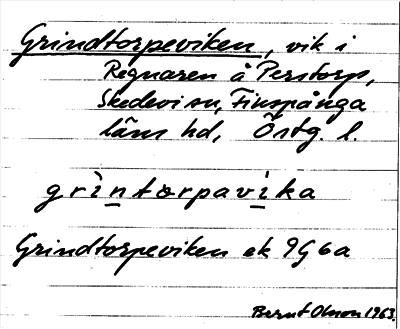 Grindtorpeviken, vik i
Regnaren å Perstorp,
Skedevi sn, Finspånga
läns hd, Östg. l.
grìntɷrpavìka
Grindtorpeviken ek 9G 6a
Bernt Olsson 1963.